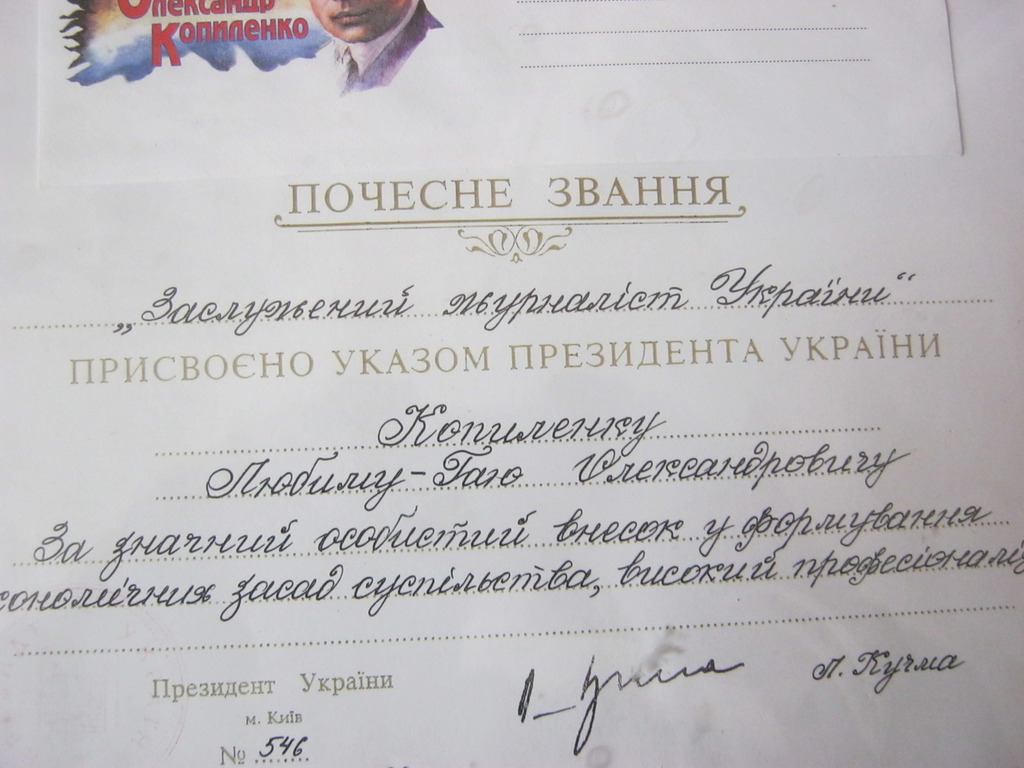 Олександр
Копиленко
ПОЧЕСНЕ ЗВАННЯ
„Заслужений журналіст України“
ПРИСВОЄНО УКАЗОМ ПРЕЗИДЕНТА УКРАЇНИ
Копиленку
Любиму-Гаю Олександровичу
За значний особистий внесок у формування
кономічних засад суспільства, високий професіоналіз
Президент України
Л. Кучма
м. Київ
№ 546